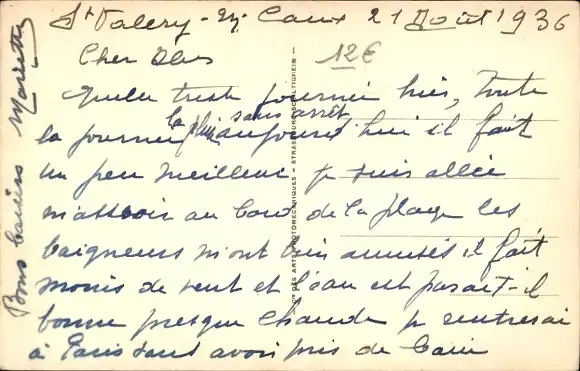 St Valery-en-Caux 21 Août 1936
12€
Cher
Quelle triste journée hier, toute
la pluie sans arrêt,
la journée aujourd'hui il fait
un peu meilleur je suis allée
m'assoir au bord de la plage les
baigneurs m'ont bien amusés il fait
moins de vent et l'eau est parait-il
bonne presque chaude je rentrerai
à Paris sans avoir pris de bain
Bons baisers